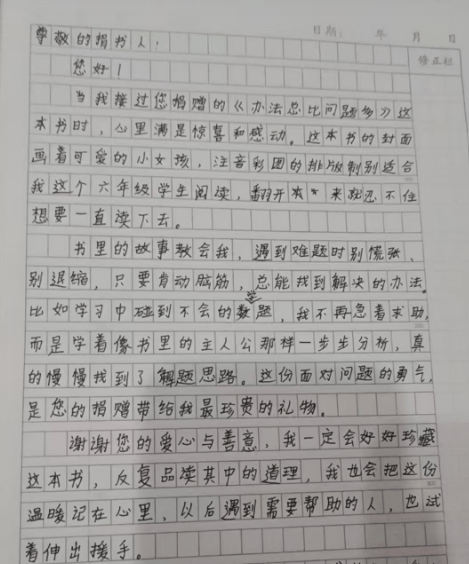 日期： 年 月 日
修正栏
尊敬的捐书人：
您好！
当我接过您捐赠的《办法总比问题多》这
本书时，心里满是惊喜和感动。这本书的封面
画着可爱的小女孩，注音彩图的排版制别适合
我这个六年级学生阅读，翻开来就忍不住
想要一直读下去。
书里的故事教会我，遇到难题时别慌张、
别退缩，只要肯动脑筋，总能找到解决的办法。
比如学习中碰到不会的数学题，我不再急着求助，
而是学着像书里的主人公那样一步步分析，真
的慢慢找到了解题思路。这份面对问题的勇气，
是您的捐赠带给我最珍贵的礼物。
谢谢您的爱心与善意，我一定会好好珍藏
这本书，反复品读其中的道理，我也会把这份
温暖记在心里，以后遇到需要帮助的人，也试
着伸出援手。